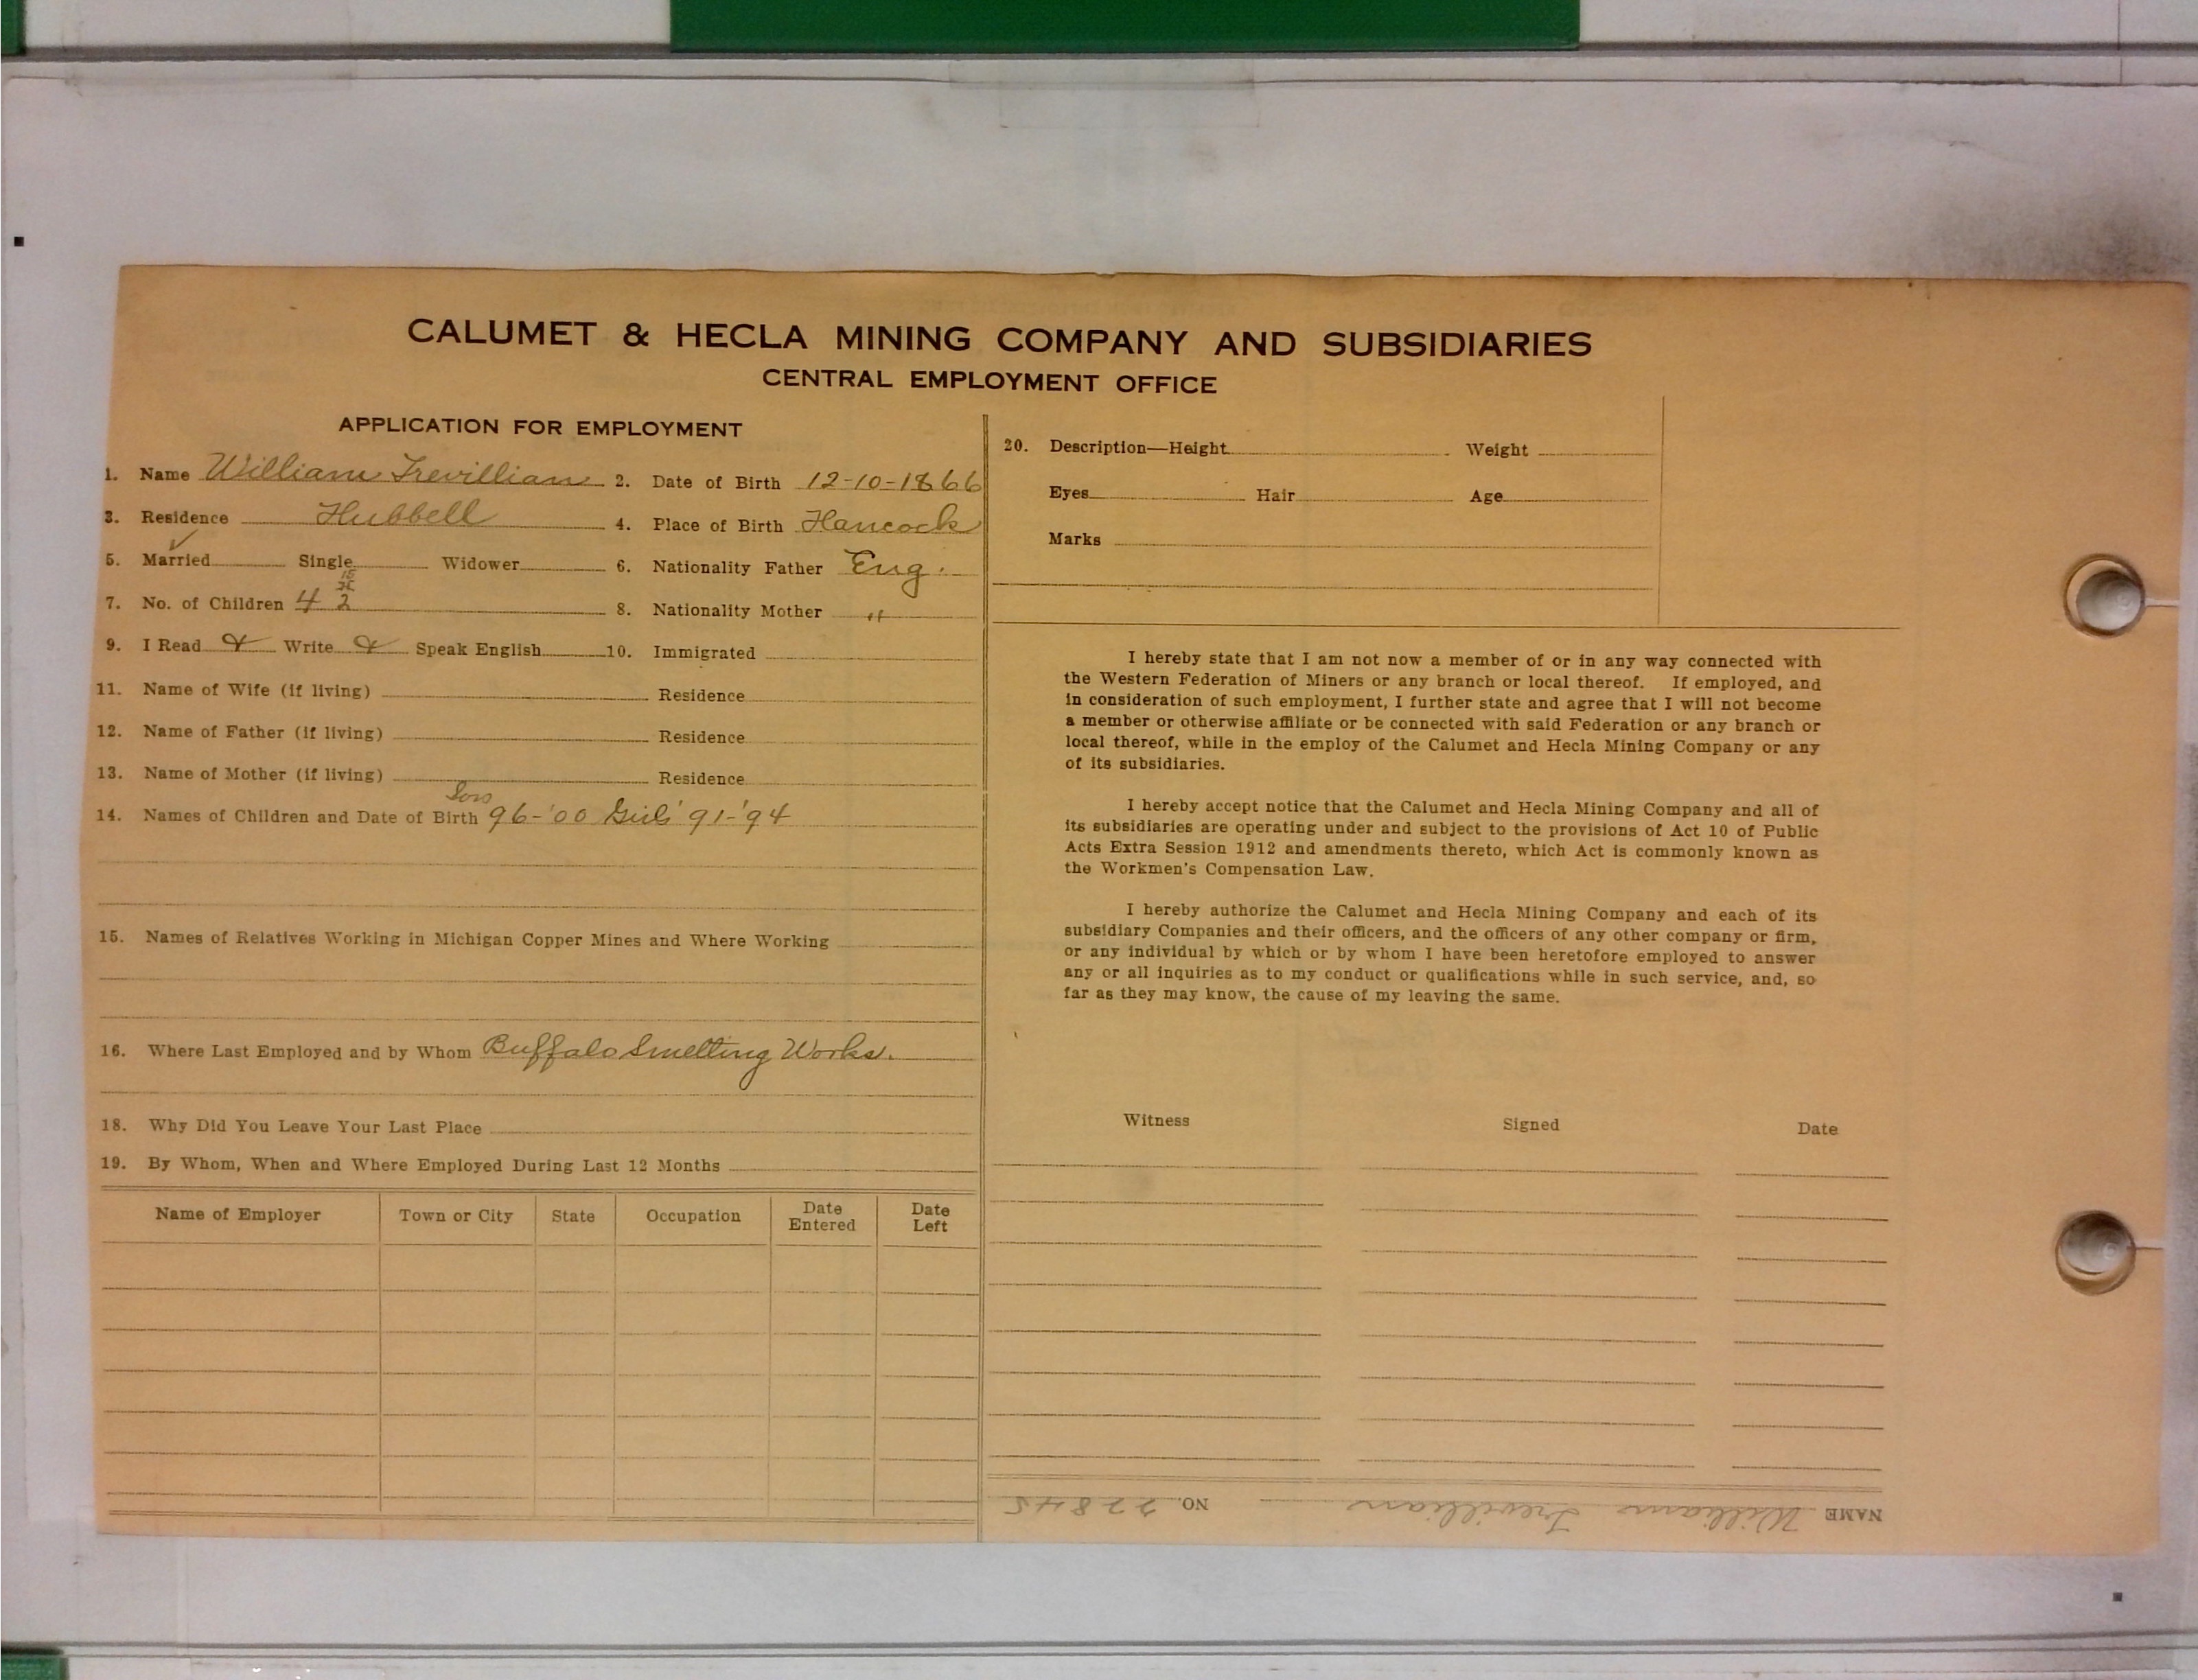 CALUMET & HECLA MINING COMPANY AND SUBSIDIARIES
CENTRAL EMPLOYMENT OFFICE
APPLICATION FOR EMPLOYMENT
1. Name William Trevillian 2. Date of Birth 12-10-1866
3. Residence Hubbell 4. Place of Birth Hancock
5. Married ✓ Single Widower 6. Nationality Father Eng.
7. No. of Children 4 2 8. Nationality Mother "
9. I Read Write Speak English 10. Immigrated
11. Name of Wife (if living) Residence
12. Name of Father (if living) Residence
13. Name of Mother (if living) Residence
14. Names of Children and Date of Birth Sons 96-'00 Girls '91-'94
15. Names of Relatives Working in Michigan Copper Mines and Where Working
16. Where Last Employed and by Whom Buffalo Smelting Works.
18. Why Did You Leave Your Last Place
19. By Whom, When and Where Employed During Last 12 Months
Name of Employer Town or City State Occupation Date Entered Date Left
20. Description—Height Weight
Eyes Hair Age
Marks
I hereby state that I am not now a member of or in any way connected with
the Western Federation of Miners or any branch or local thereof. If employed, and
in consideration of such employment, I further state and agree that I will not become
a member or otherwise affiliate or be connected with said Federation or any branch or
local thereof, while in the employ of the Calumet and Hecla Mining Company or any
of its subsidiaries.
I hereby accept notice that the Calumet and Hecla Mining Company and all of
its subsidiaries are operating under and subject to the provisions of Act 10 of Public
Acts Extra Session 1912 and amendments thereto, which Act is commonly known as
the Workmen's Compensation Law.
I hereby authorize the Calumet and Hecla Mining Company and each of its
subsidiary Companies and their officers, and the officers of any other company or firm,
or any individual by which or by whom I have been heretofore employed to answer
any or all inquiries as to my conduct or qualifications while in such service, and, so
far as they may know, the cause of my leaving the same.
Witness Signed Date
NAME William Trevillian NO. 22845